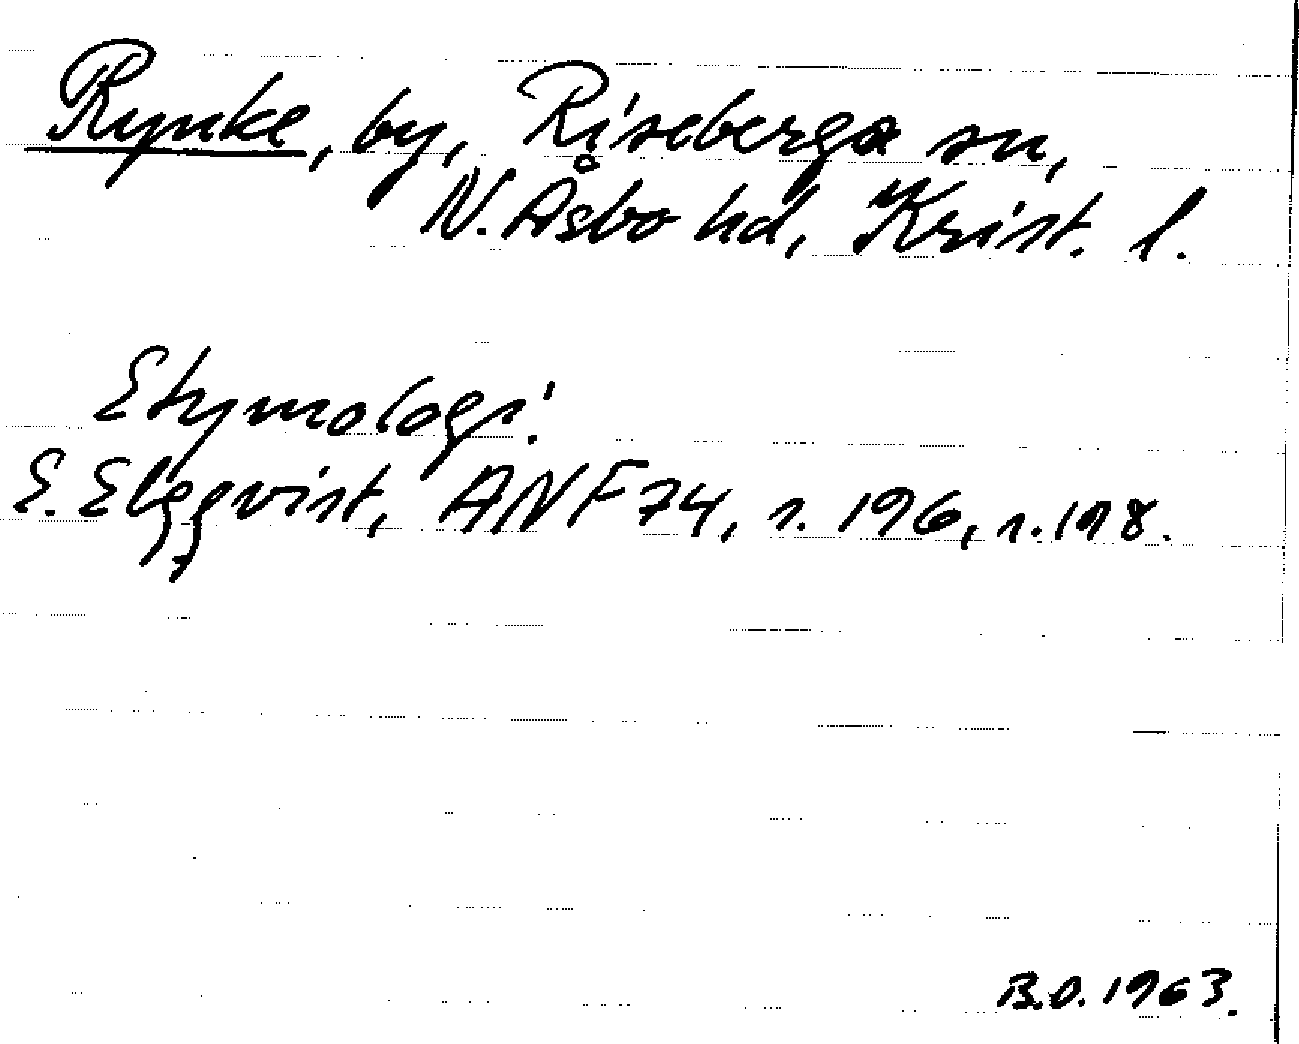 Rynke, by, Riseberga sn,
N. Åsbo hd, Krist. l.
Etymologi:
E. Elgqvist, ANF 74, s. 196, s. 198.
B.O. 1963.